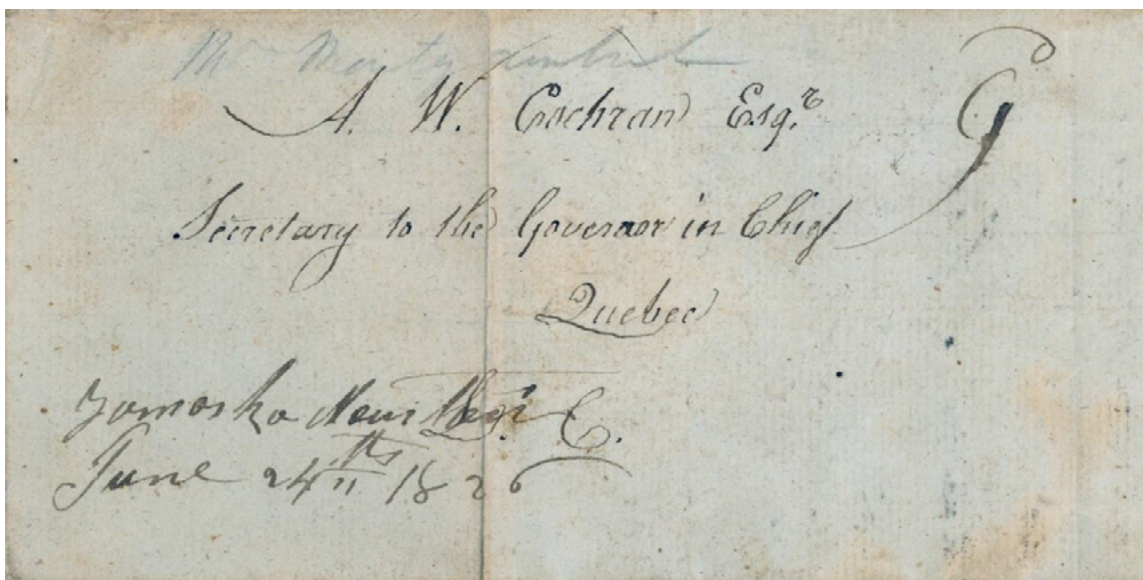 A. W. Cochran Esqr. 9
Secretary to the Governor in Chief
Quebec
Yamaska
June 24th 1826